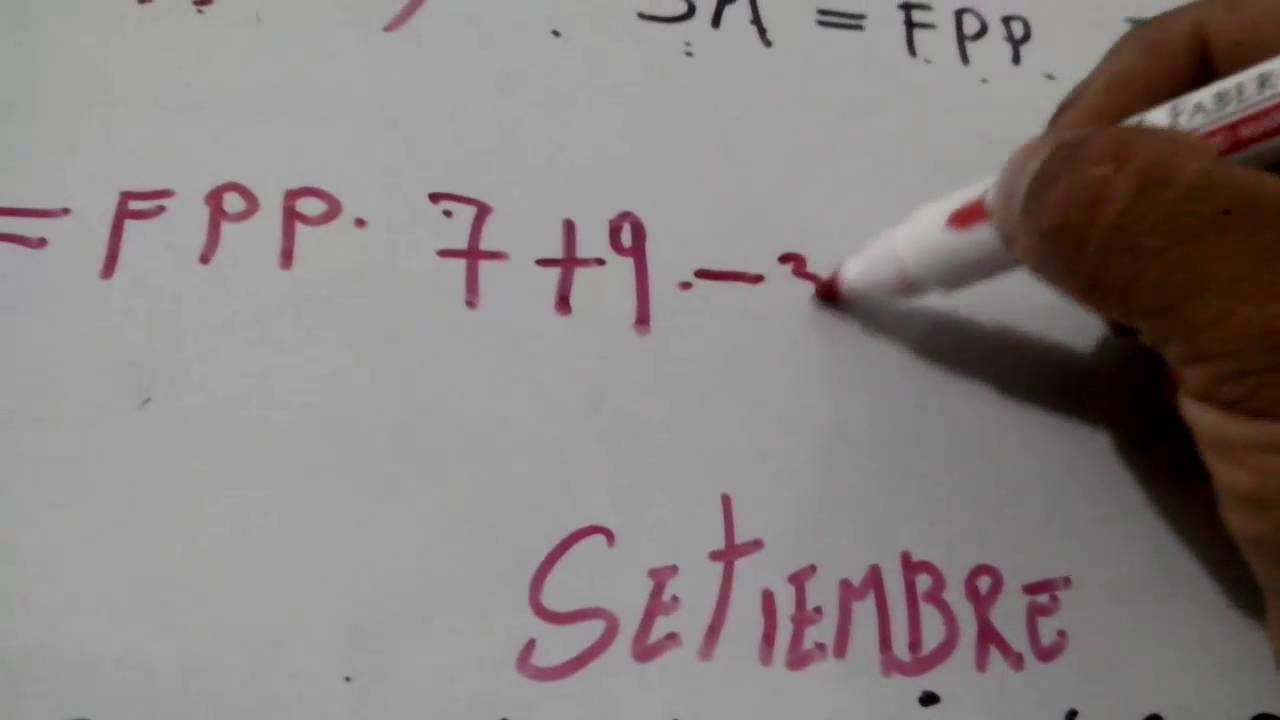 = FPP
FABER
= FPP. 7+9.-3
SETIEMBRE